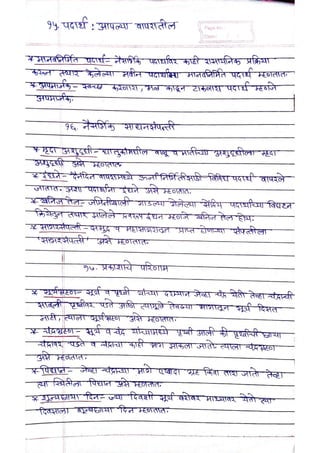 १५ पदार्थ : आपल्या वापरातील
* मानवनिर्मित पदार्थ- नैसर्गिक पदार्थांवर काही रासायनिक प्रक्रिया
करून तयार केलेल्या नवीन पदार्थांना मानवनिर्मित पदार्थ म्हणतात.
* अपमार्जक- स्वच्छ करणारा, मळ काढून टाकणारा पदार्थ म्हणजे
अपमार्जक.
१६. नैसर्गिक साधनसंपत्ती
* मृदा अशुद्धी- धातुकांमधील वाळू व मातीच्या अशुद्धीला मृदा
अशुद्धी असे म्हणतात.
* इंधने- दैनंदिन वापरामध्ये ऊर्जा निर्मितीसाठी विविध पदार्थ वापरले
जातात. अशा पदार्थांना इंधने असे म्हणतात.
* खनिज तेल- जमिनीखाली गाडल्या गेलेल्या सेंद्रिय पदार्थांच्या विघटन
क्रियेतून तयार झालेले द्रवरूप इंधन म्हणजे खनिज तेल होय.
* सागरसंपत्ती- समुद्र व महासागरातून प्राप्त होणाऱ्या संपत्तीला
'सागरसंपत्ती' असे म्हणतात.
१७. प्रकाशाचे परिणाम
* सूर्यग्रहण- सूर्य व पृथ्वी यांच्या दरम्यान जेव्हा चंद्र येतो तेव्हा चंद्राची
सावली पृथ्वीवर पडते आणि त्यामुळे तेवढ्या भागातून सूर्य दिसत
नाही, त्याला सूर्यग्रहण असे म्हणतात.
* चंद्रग्रहण- सूर्य व चंद्र यांच्यामध्ये पृथ्वी आली की पृथ्वीची छाया
चंद्रावर पडते व चंद्राचा काही भाग झाकला जातो. त्याला चंद्रग्रहण
असे म्हणतात.
* पिधान- जेव्हा चंद्राच्या मागे एखादा ग्रह किंवा तारा जातो तेव्हा
त्या स्थितीला पिधान असे म्हणतात.
* शून्यछाया दिन- ज्या दिवशी सूर्य बरोबर माथ्यावर येतो त्या
दिवसाला शून्यछाया दिन म्हणतात.